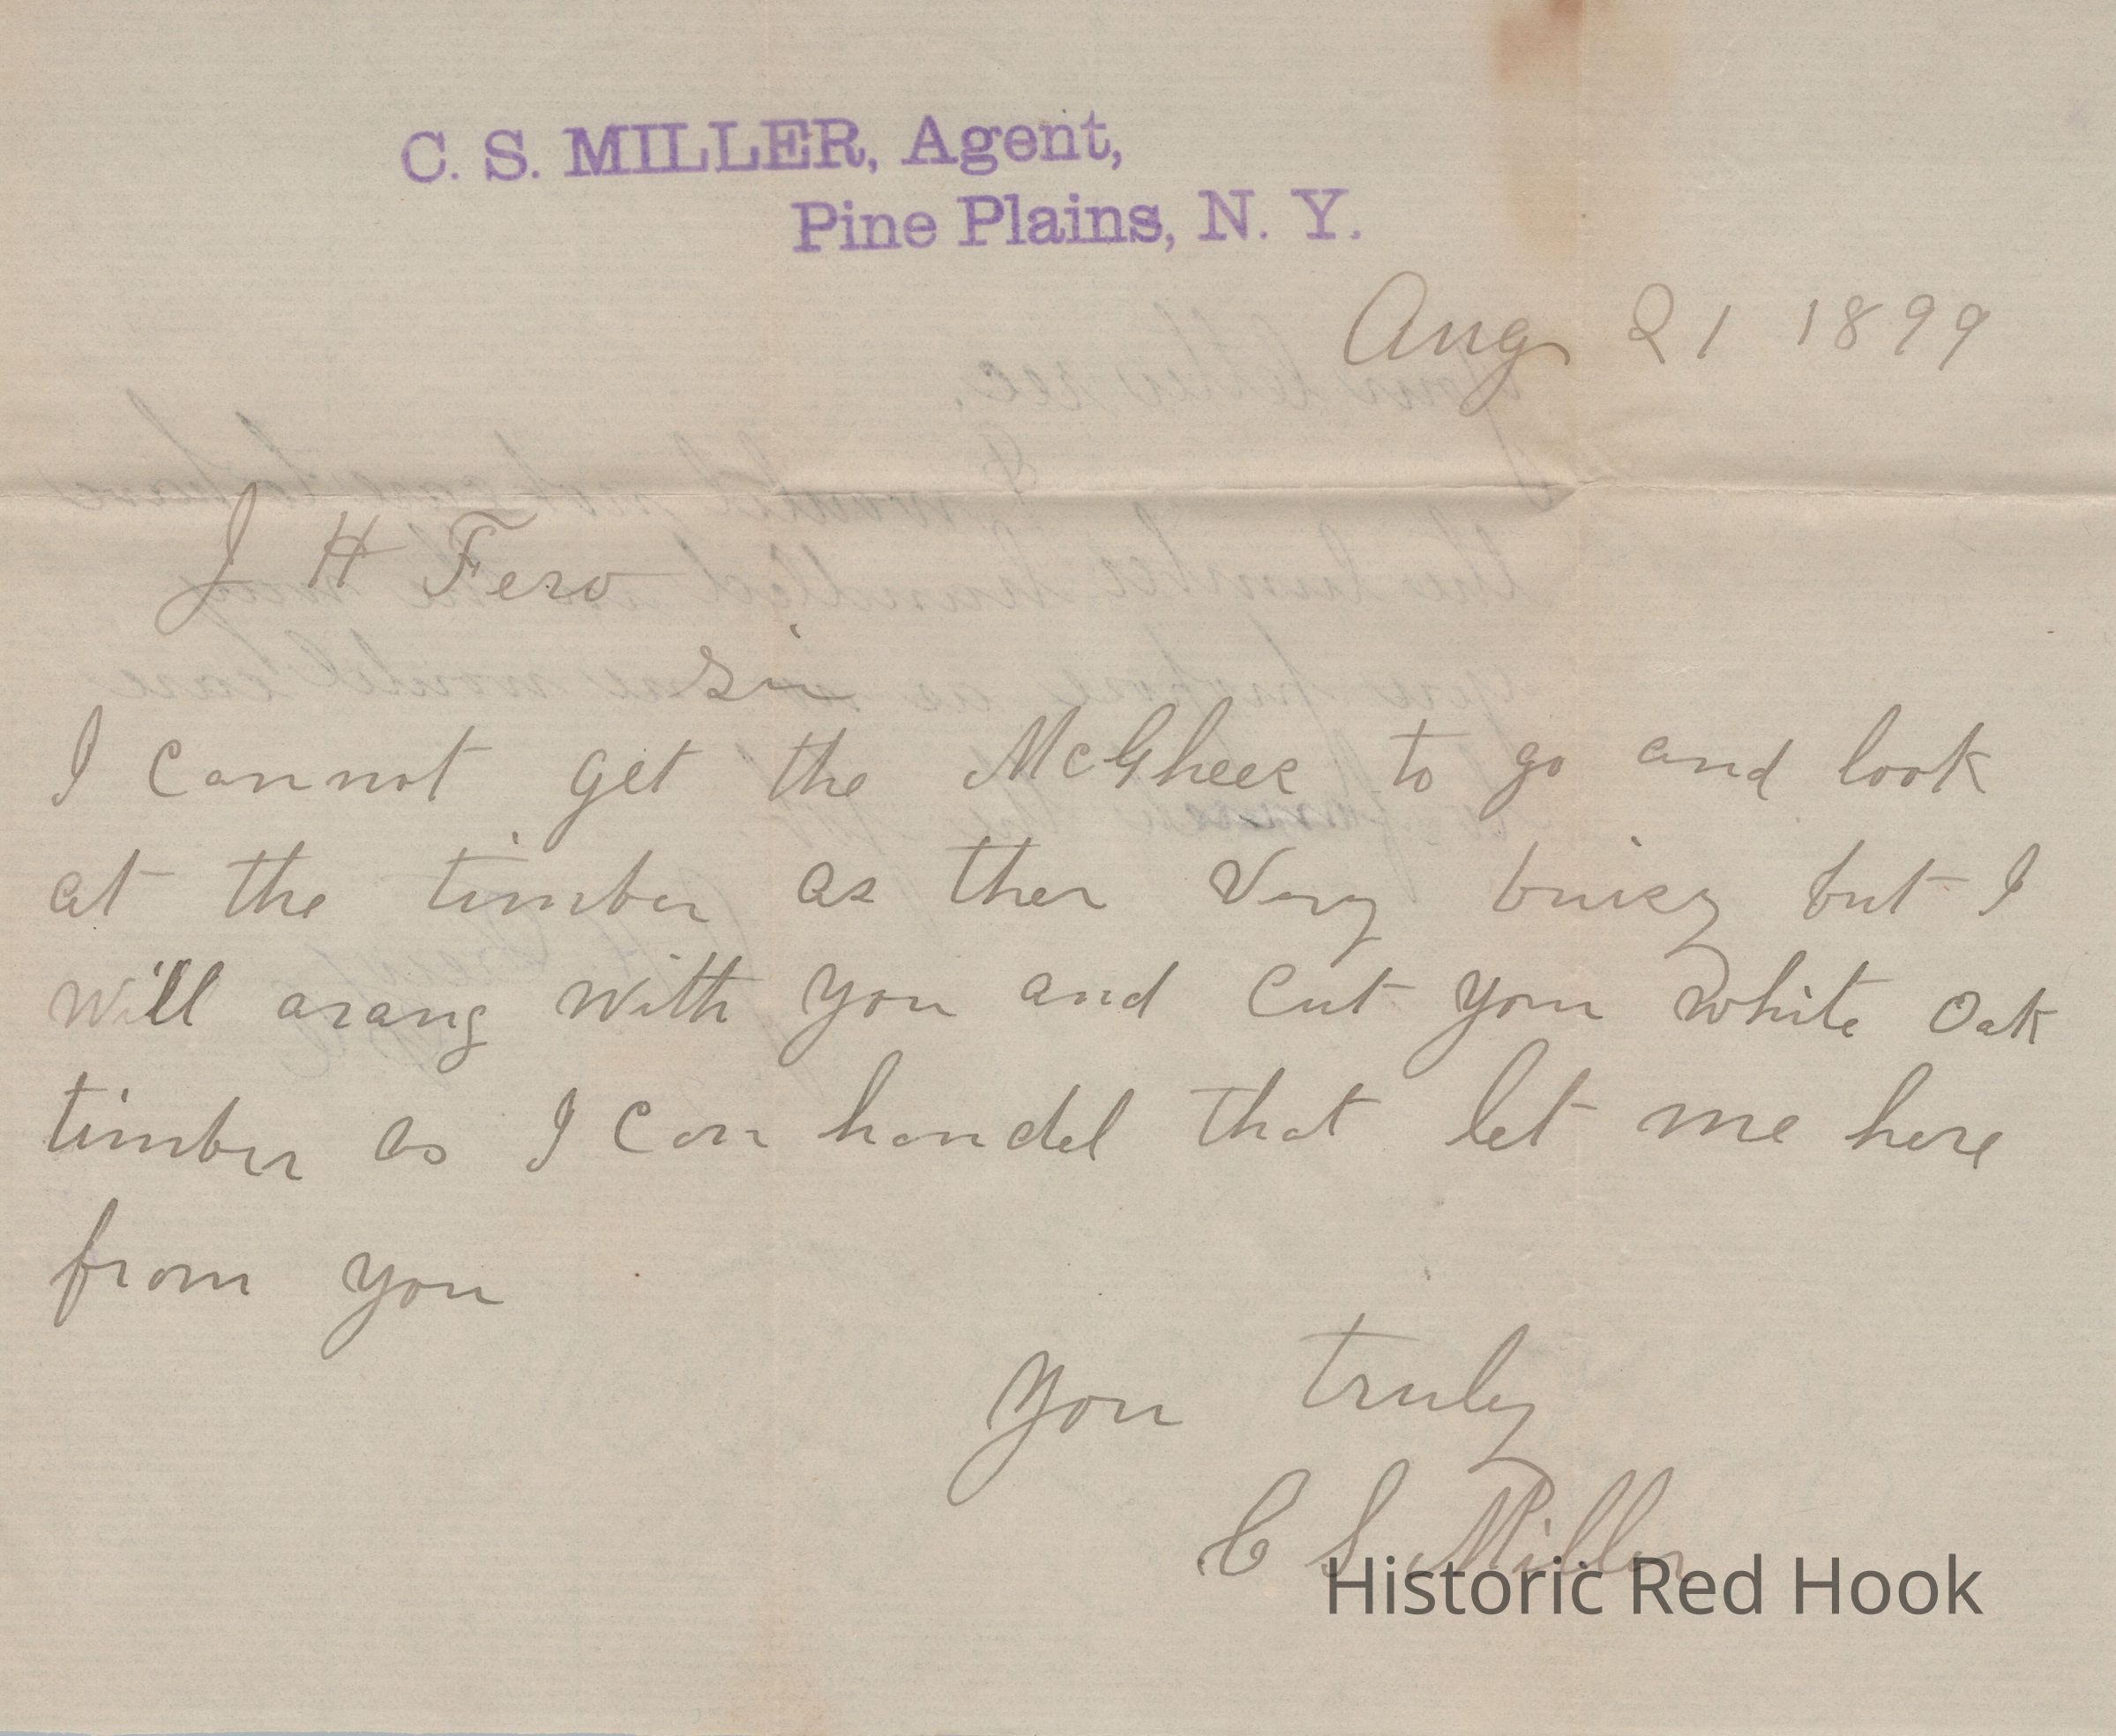 C. S. MILLER, Agent,
Pine Plains, N. Y.
Aug 21 1899
J H Fero
Sir
I cannot get the McGhees to go and look
at the timber as ther very buisy but I
will arang with you and cut your white oak
timber as I can handel that let me here
from you
Your truly
C S Miller
Historic Red Hook